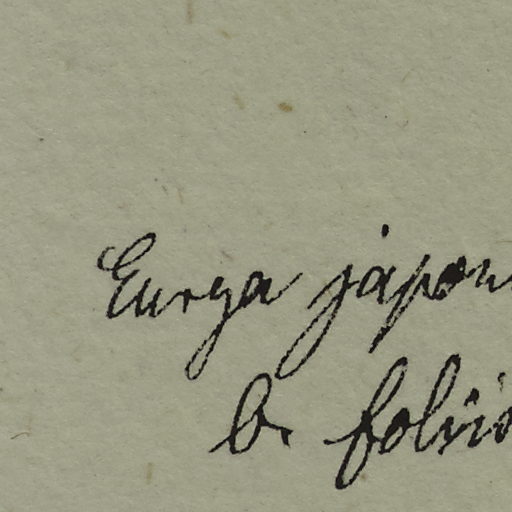 Eurya japon
b. foliis